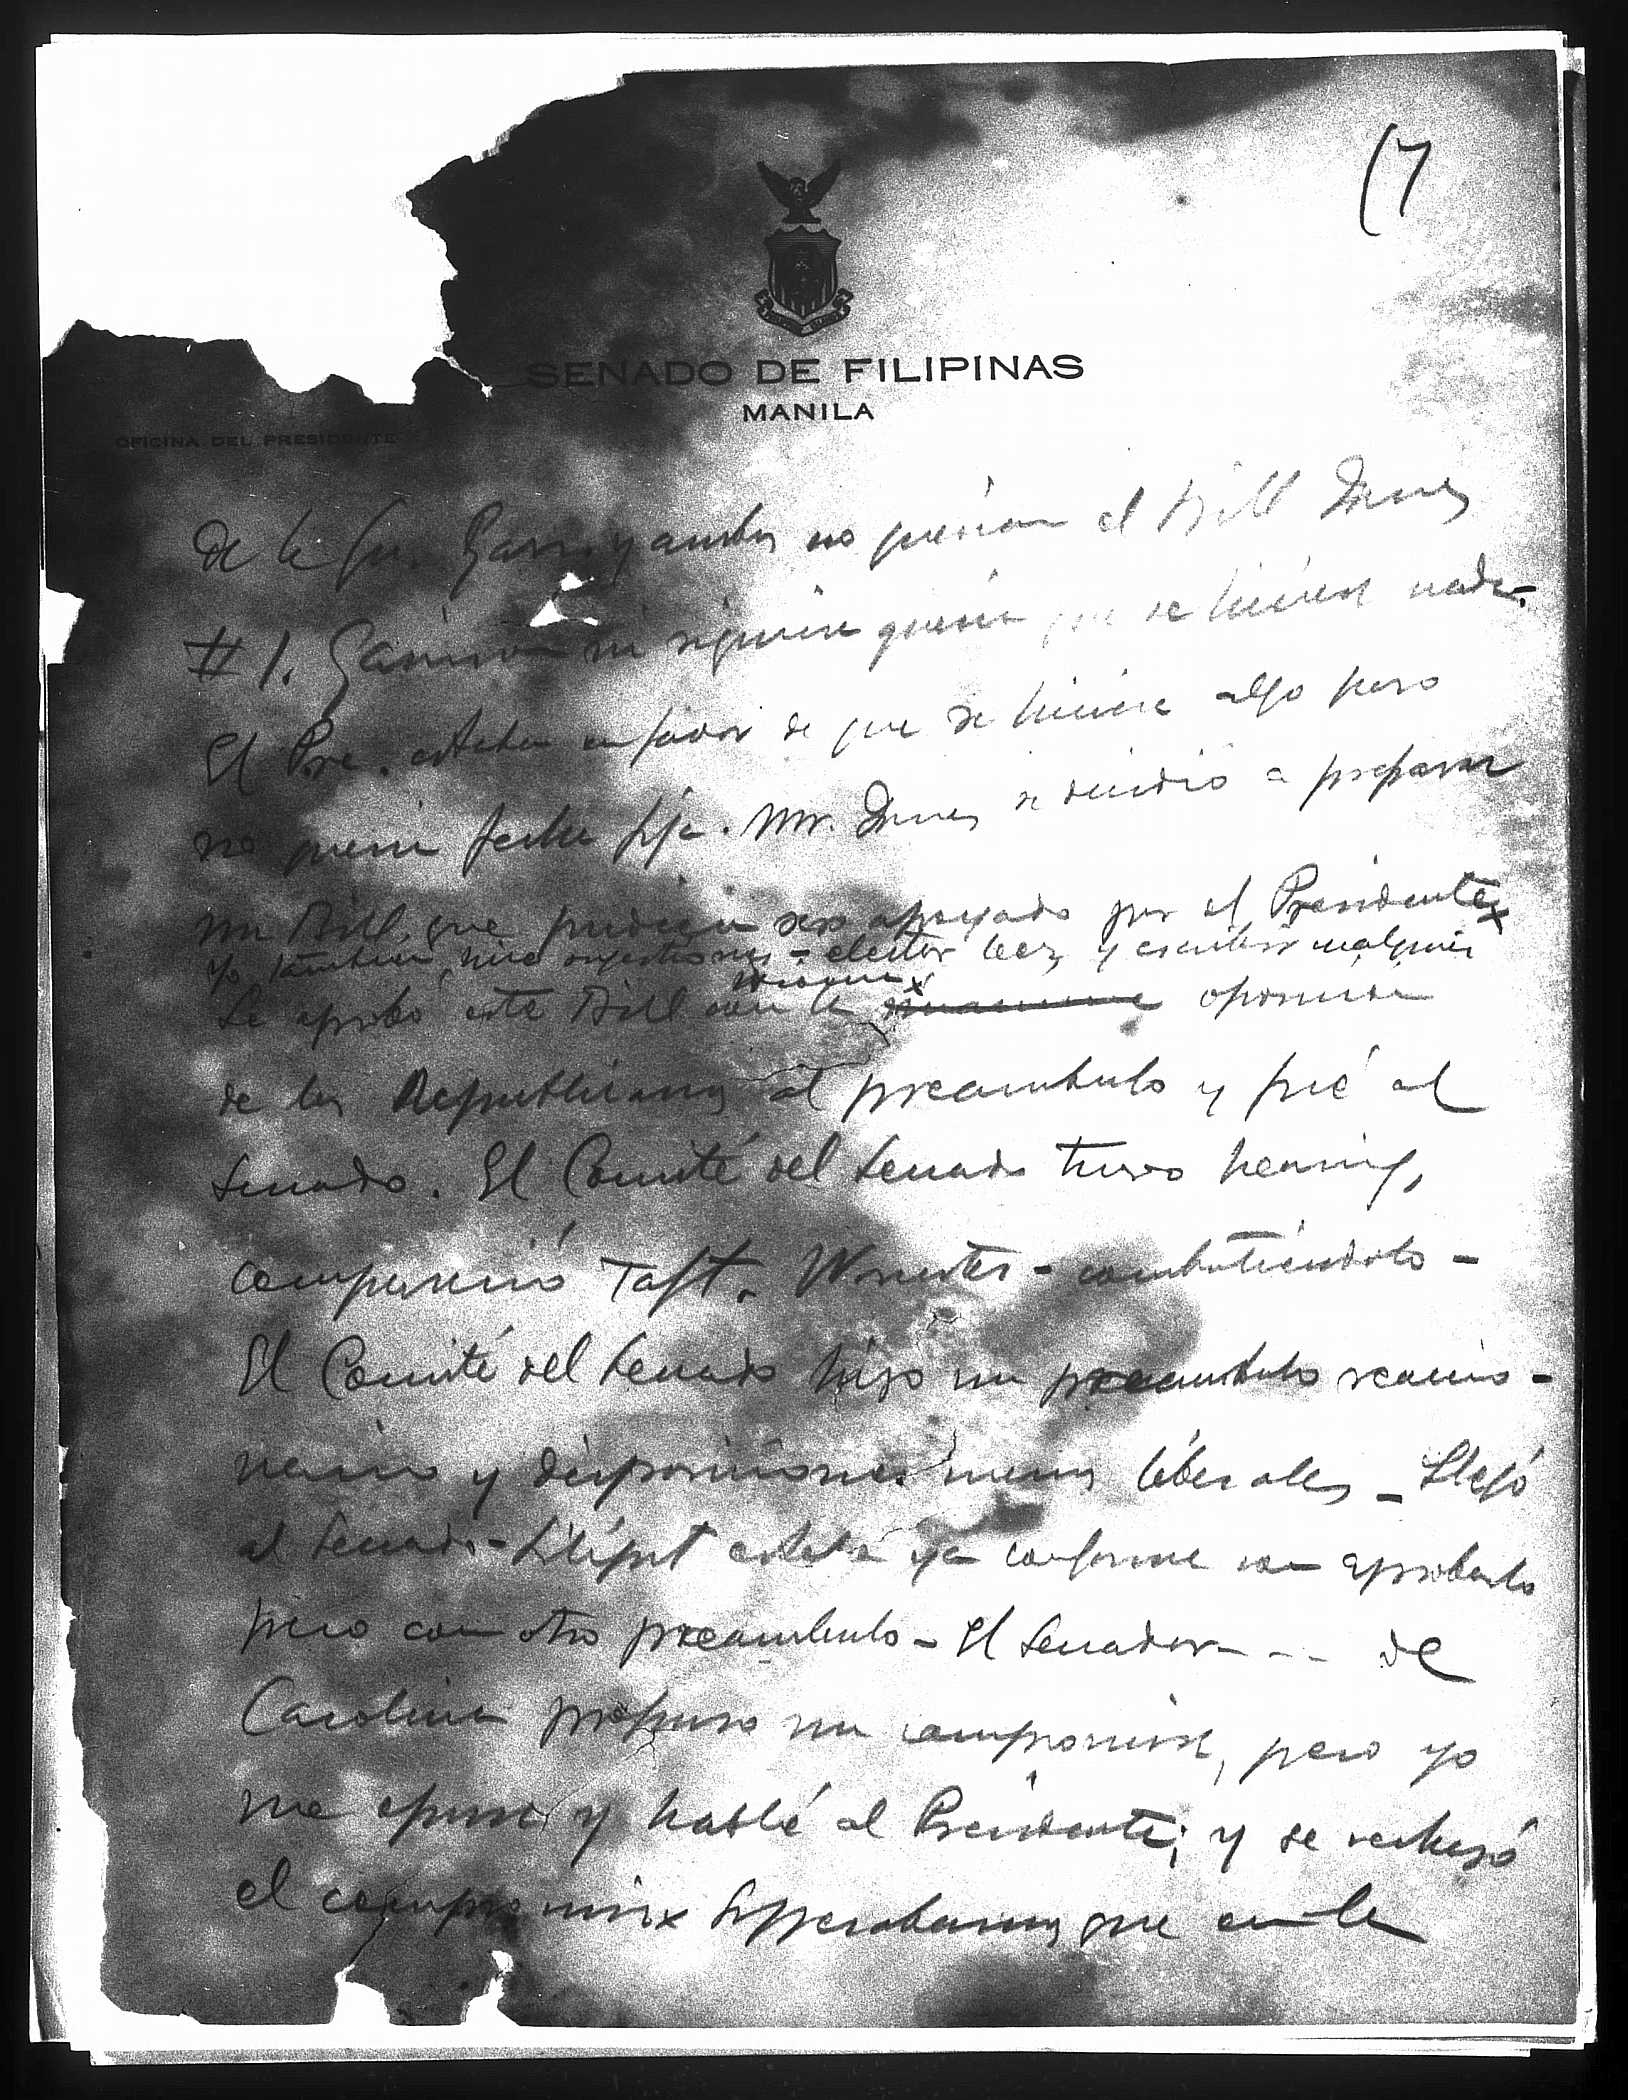 (7
SENADO DE FILIPINAS
MANILA
OFICINA DEL PRESIDENTE
de la Gu. Garr. y ambos no querian el Bill Jones
# 1. Garrison ni siquiera queria que se hiciese nada.
El Pre. estaba en favor de que se hiciera algo pero
no queria fecha fija. Mr. Jones se decidió a preparar
un Bill, que pudiera ser apoyado por el Presidente x
Yo tambien hice sugestiones - elector leer y escribir cualquier
Se aprobó este Bill con la oposicion
de los Republicanos al preambulo y fué al
Senado. El Comité del Senado tuvo hearing,
compareció Taft. Worcester - combatiéndolo -
El Comité del Senado hizo un preambulo reaccio-
nario y disposiciones menos liberales - Llegó
al Senado - estaba ya conforme con aprobarlo
pero con otro preambulo - El Senador - - - de
Carolina propuso un compromise, pero yo
me opuse y hablé al Presidente; y se rechazó
el compromise x que en la